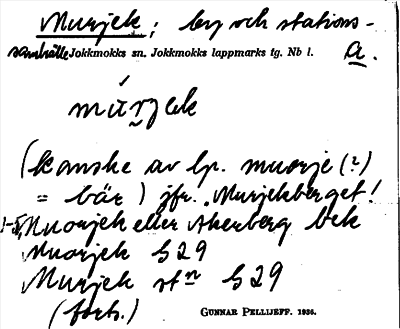 Murjek; by och stations-
samhälle Jokkmokks sn. Jokkmokks lappmarks tg. Nb l. a.
múrjek
(kanske av lp. muorje (?)
= bär) jfr. Murjekberget!
Muorjek eller Akerberg bek
Muorjek S 29
Murjek stn S 29
(forts.)
GUNNAR PELLIJEFF. 1936.